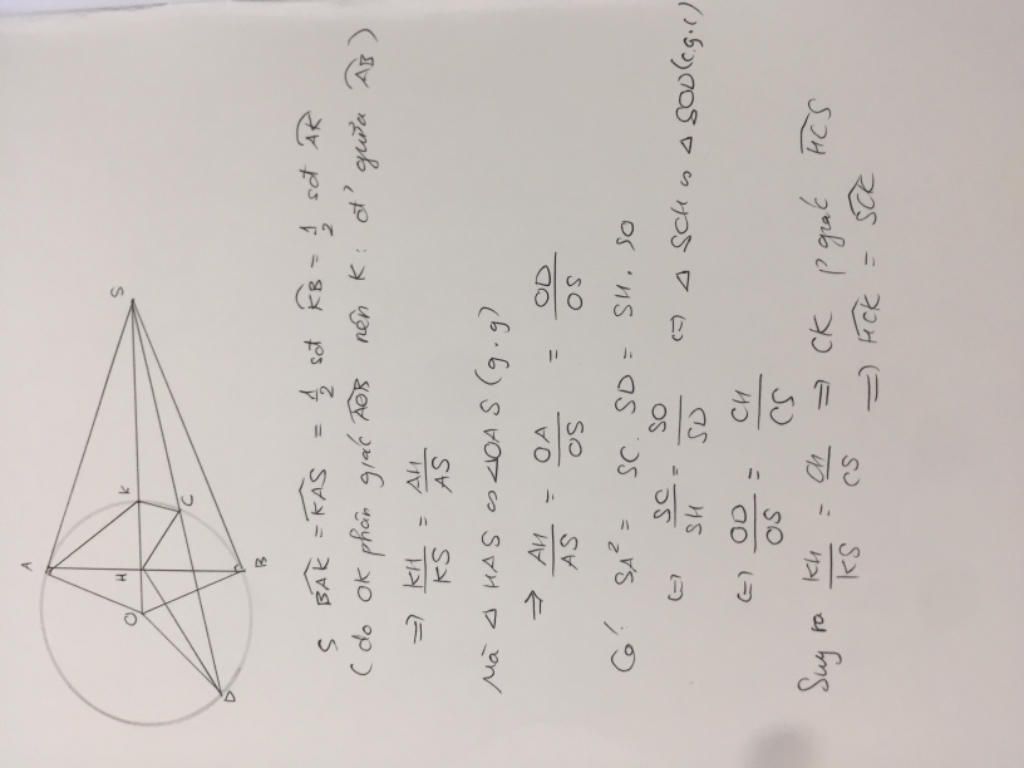 A
S
K
H
O
C
B
D
S BAK̂ = KAŜ = 1/2 sđ KB̂ = 1/2 sđ AK̂
(do OK phân giác AOB̂ nên K: đ' giữa AB̂)
=> KH/KS = AH/AS
Mà △ HAS ∽ △OAS (g.g)
=> AH/AS = OA/OS = OD/OS
Có: SA² = SC. SD = SH. SO
(=) SC/SH = SO/SD (=) △ SCH ∽ △ SOD (c.g.c)
(=) OD/OS = CH/CS
Suy ra KH/KS = CH/CS => CK p giác HCŜ
=> HCK̂ = SCK̂